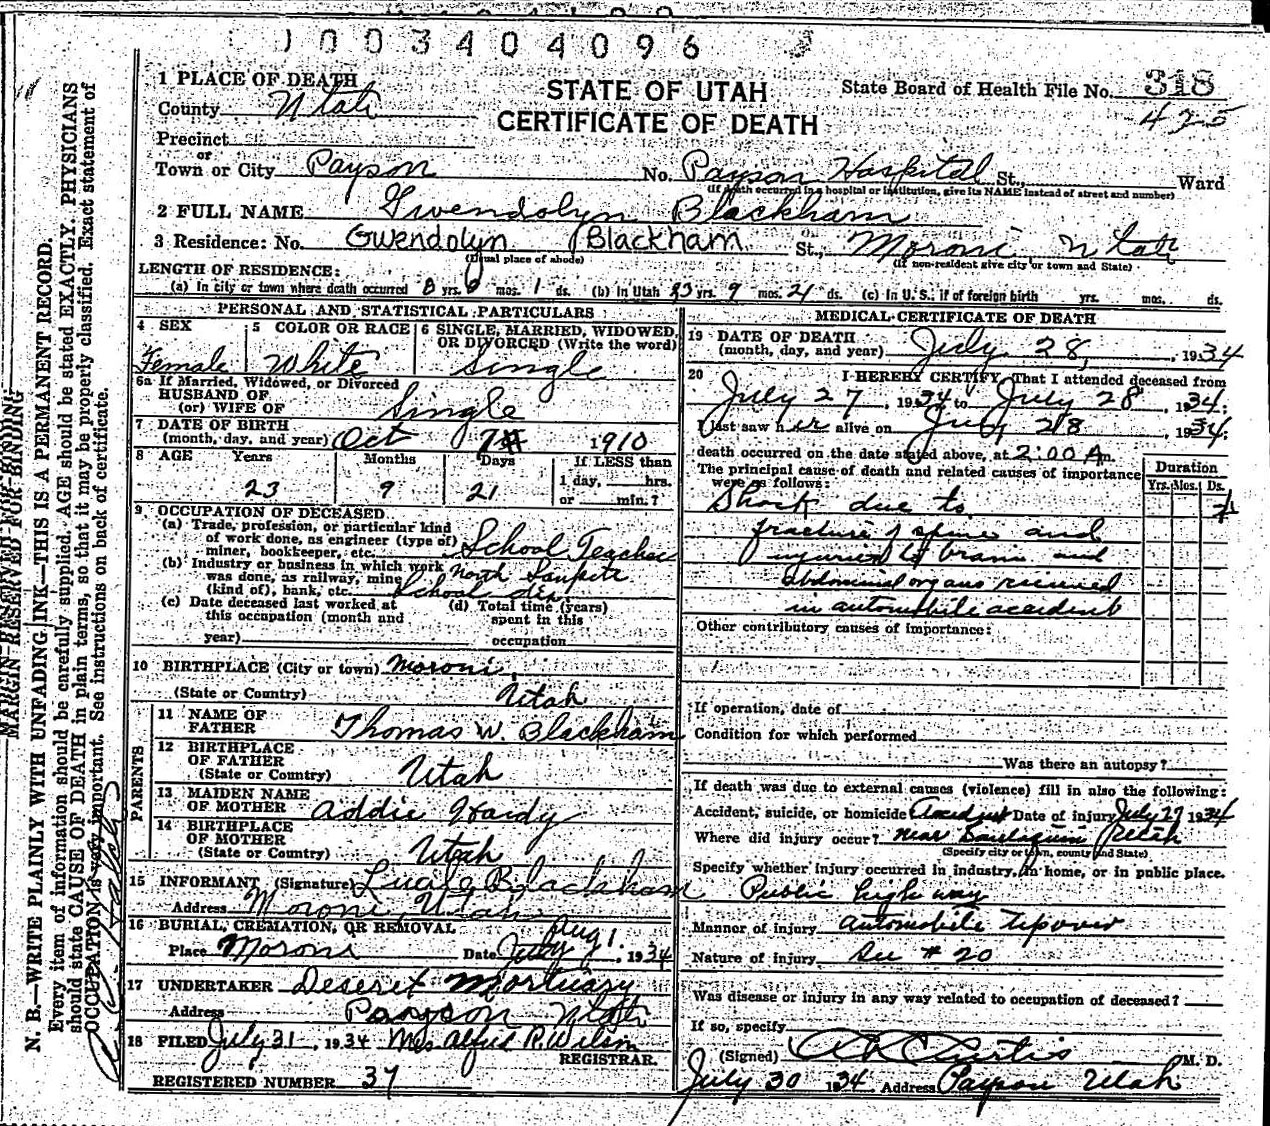 1003404096
1 PLACE OF DEATH
STATE OF UTAH
CERTIFICATE OF DEATH
State Board of Health File No. 318
425
County Utah
Precinct
or
Town or City Payson No. Payson Hospital St., Ward
(If death occurred in a hospital or institution, give its NAME instead of street and number)
2 FULL NAME Gwendolyn Blackham
3 Residence: No. Gwendolyn Blackham St., Moroni Utah
(Usual place of abode) (If non-resident give city or town and State)
LENGTH OF RESIDENCE:
(a) In city or town where death occurred 0 yrs. 0 mos. 1 ds. (b) In Utah 23 yrs. 9 mos. 21 ds. (c) In U. S., if of foreign birth yrs. mos. ds.
PERSONAL AND STATISTICAL PARTICULARS
4 SEX Female
5 COLOR OR RACE White
6 SINGLE, MARRIED, WIDOWED, OR DIVORCED (Write the word) Single
6a If Married, Widowed, or Divorced
HUSBAND OF
(or) WIFE OF Single
7 DATE OF BIRTH
(month, day, and year) Oct 7 1910
8 AGE Years Months Days If LESS than
23 9 21 1 day, hrs.
or min.?
9 OCCUPATION OF DECEASED
(a) Trade, profession, or particular kind
of work done, as engineer (type of)
miner, bookkeeper, etc. School Teacher
(b) Industry or business in which work
was done, as railway, mine North Sanpete
(kind of), bank, etc. School dis
(c) Date deceased last worked at
this occupation (month and
year)
(d) Total time (years)
spent in this
occupation
10 BIRTHPLACE (City or town) Moroni,
(State or Country) Utah
PARENTS
11 NAME OF
FATHER Thomas W. Blackham
12 BIRTHPLACE
OF FATHER
(State or Country) Utah
13 MAIDEN NAME
OF MOTHER Addie Hardy
14 BIRTHPLACE
OF MOTHER
(State or Country) Utah
15 INFORMANT (Signature) Lucile Blackham
Address Moroni, Utah
16 BURIAL, CREMATION, OR REMOVAL
Place Moroni Date July Aug 1. 1934
17 UNDERTAKER Deseret Mortuary
Address Payson Utah
18 FILED July 31, 1934 Mrs Alfred R. Wilson
REGISTRAR.
REGISTERED NUMBER 37
MEDICAL CERTIFICATE OF DEATH
19 DATE OF DEATH
(month, day, and year) July 28, 1934
20 I HEREBY CERTIFY, That I attended deceased from
July 27, 1934 to July 28, 1934;
I last saw her alive on July 28, 1934;
death occurred on the date stated above, at 2:00 A m.
The principal cause of death and related causes of importance
were as follows:
Duration
Yrs. Mos. Ds.
Shock due to
fracture of spine and
injuries to brain and
abdominal organs received
in automobile accident
Other contributory causes of importance:
If operation, date of
Condition for which performed
Was there an autopsy?
If death was due to external causes (violence) fill in also the following:
Accident, suicide, or homicide Accident Date of injury July 27 1934
Where did injury occur? near Utah
(Specify city or town, county and State)
Specify whether injury occurred in industry, in home, or in public place.
Public highway
Manner of injury Automobile tipover
Nature of injury See # 20
Was disease or injury in any way related to occupation of deceased?
If so, specify
(Signed) A L Curtis M. D.
July 30 1934 Address Payson Utah
MARGIN RESERVED FOR BINDING
N. B.—WRITE PLAINLY WITH UNFADING INK—THIS IS A PERMANENT RECORD.
Every item of information should be carefully supplied. AGE should be stated EXACTLY. PHYSICIANS
should state CAUSE OF DEATH in plain terms, so that it may be properly classified. Exact statement of
OCCUPATION is very important. See instructions on back of certificate.